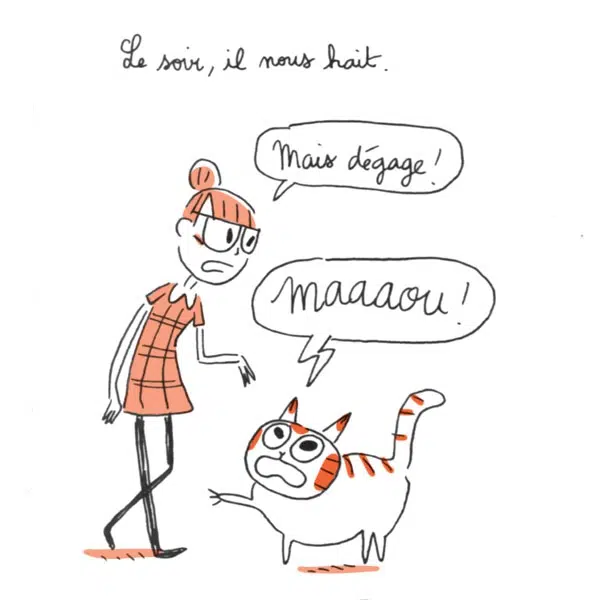 Le soir, il nous hait.
Mais dégage !
Maaaaou !